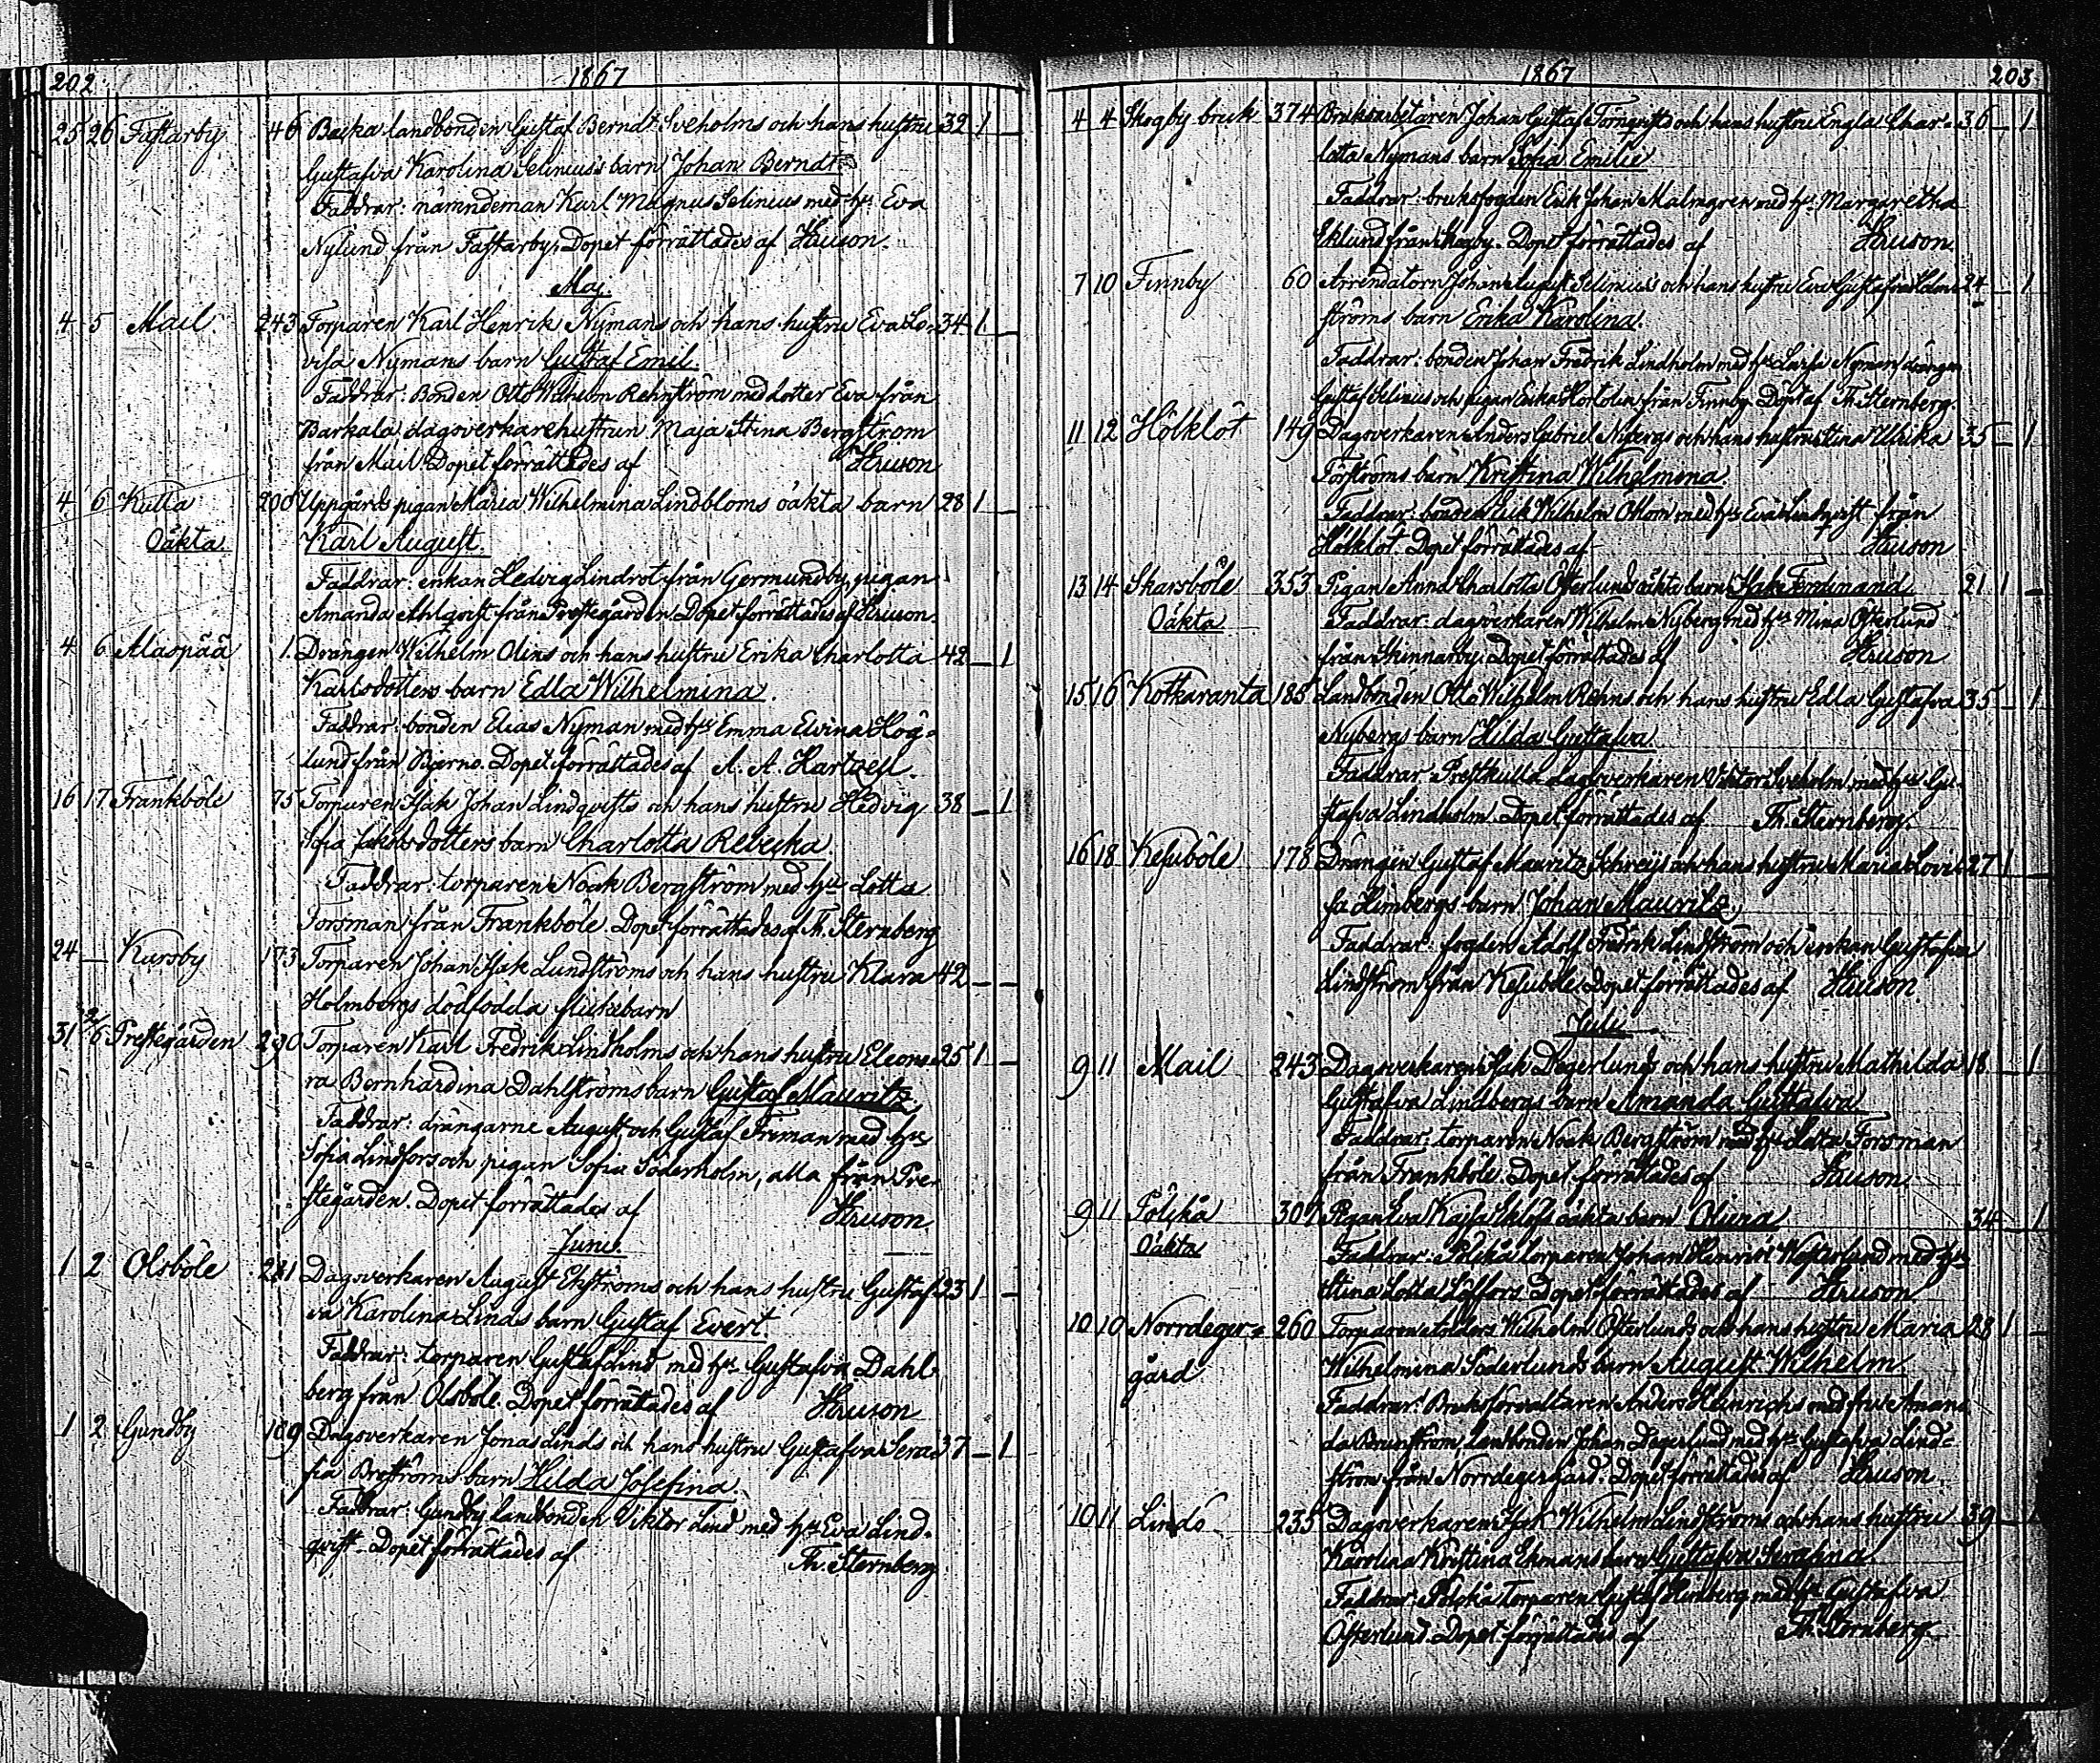 202. 1867
25 26 Fastarby 46 Backa landbonden Gustaf Berndt Sveholms och hans hustru 32 1 –
Gustafva Karolina Selinius's barn Johan Berndt
Faddrar: nämndeman Karl Magnus Selinius med h:u Eva
Nylund från Fastarby. Dopet förrättades af Hruson.
Maj.
4 5 Mail 243 Torparen Karl Henrik Nymans och hans hustru Eva Lo- 34 1 –
visa Nymans barn Gustaf Emil.
Faddrar: Bonden Otto Wilhelm Rehnström med dotter Eva från
Barkala, dagsverkarehustrun Maja Stina Bergström
från Mail. Dopet förrättades af Hruson
4 6 Kulla 200 Uppgårds pigan Maria Wilhelmina Lindbloms oäkta barn 28 1 –
Oäkta Karl August.
Faddrar: enkan Hedvig Lindrot från Germundby, pigan
Amanda Ahlqvist från Prestegården. Dopet förrättades af Hruson.
4 6 Alaspää 1. Drängen Wilhelm Olins och hans hustru Erika Charlotta 42 – 1
Karlsdotters barn Edla Wilhelmina.
Faddrar: bonden Elias Nyman med h:u Emma Elvina Hög-
lund från Bjerno. Dopet förrättades af A. A. Hartzell.
16 17 Frankböle 75 Torparen Isak Johan Lindqvists och hans hustru Hedvig 38 – 1
Sofia Jakobsdotters barn Charlotta Rebecka
Faddrar: torparen Noak Bergström med h:u Lotta
Forsman från Frankböle. Dopet förrättades af Th. Sternberg
24 – Karsby 173 Torparen Johan Isak Lundströms och hans hustru Klara 42 – –
Holmbergs dödfödda flickebarn
31 2/6 Prestegården 290 Torparen Karl Fredrik Lindholms och hans hustru Eleono- 25 1 –
ra Bernhardina Dahlströms barn Gustaf Mauritz.
Faddrar: drängarne August och Gustaf Friman med h:u
Sofia Lindfors och pigan Sofia Söderholm, alla från Pre-
stegården. Dopet förrättades af Hruson
Juni.
1 2 Olsböle 281 Dagsverkaren August Ekströms och hans hustru Gustaf- 23 1 –
va Karolina Linds barn Gustaf Evert
Faddrar: torparen Gustaf Lind med h:u Gustafva Dahl-
berg från Olsböle. Dopet förrättades af Hruson
1 2 Gundby 109 Dagsverkaren Jonas Linds och hans hustru Gustafva Sera- 37 – 1
fia Broströms barn Hilda Josefina.
Faddrar: Gundby landbonden Viktor Lind med h:u Eva Lind-
qvist. Dopet förrättades af Th. Sternberg
1867 203.
4 4 Skogby bruk 374 Bruksarbetaren Johan Gustaf Törnqvists och hans hustru Engla Char- 36 – 1
lotta Nymans barn Sofia Emilie
Faddrar: bruksfogden Erik Johan Malmgren med h:u Margaretha
Eklund från Skogby. Dopet förrättades af Hruson.
7 10 Finnby 60 Arrendatorn Johan August Selinius's och hans hustru Eva Gustafva Holm- 24 – 1
ströms barn Erika Karolina.
Faddrar: bonden Johan Fredrik Lindholm med h:u Lovisa Nyman, drängen
Gustaf Selinius och pigan Erika från Finnby. Döpt af Th. Sternberg.
11 12 Hölklöt 149 Dagsverkaren Anders Gabriel Nybergs och hans hustru Stina Ulrika 35 – 1
Förströms barn Kristina Wilhelmina.
Faddrar: bonden Erik Wilhelm med h:u Eva Lindqvist från
Hölklöt. Dopet förrättades af Hruson
13 14 Skarsböle 353 Pigan Anna Charlotta Österlunds oäkta barn Isak Ferdinand 21 1 –
Oäkta Faddrar: dagsverkaren Wilhelm Nyberg med h:u Mina Österlund
från Skinnarby. Dopet förrättades af Hruson
15 16 Kotkaranta 185 Landbonden Otto Wilhelm Rehns och hans hustru Edla Gustafva 35 – 1
Nybergs barn Hilda Gustafva.
Faddrar: Prestkulla dagsverkaren Viktor Sveholm med h:u Gu-
stafva Lindholm. Dopet förrättades af Th. Sternberg.
16 18 Kesuböle 178 Drängen Gustaf Mauritz och hans hustru Maria Lovi- 27 1 –
sa Limbergs barn Johan Mauritz.
Faddrar: fogden Adolf Fredrik Lindström och enkan Gustafva
Lindström från Kesuböle. Dopet förrättades af Hruson.
Juli
9 11 Mail 243 Dagsverkaren Isak Degerlunds och hans hustru Mathilda 18 – 1
Gustafva Lindbergs barn Amanda Gustafva
Faddrar: torparen Noak Bergström med h:u Lotta Forsman
från Frankböle. Dopet förrättades af Hruson
9 11 Pölckä 307 Pigan Eva Kajsa oäkta barn Olivia 34 – 1
Oäkta Faddrar: Pölckä torparen Johan Henrik Westerlund med h:u
Stina Lotta Löffors. Dopet förrättades af Hruson
10 10 Norrdeger- 260 Torparen Wilhelm Österlunds och hans hustru Maria 28 1 –
gård Wilhelmina Söderlunds barn August Wilhelm
Faddrar: Bruksförvaltaren Anders Heinrichs med fru Aman-
da Brunström, landbonden Johan Degerlund med h:u Gustafva Lind-
ström från Norrdegergård. Dopet förrättades af Hruson
10 11 Linds 235 Dagsverkaren Isak Wilhelm Lindströms och hans hustru 39 – 1
Karolina Kristina Ekmans barn Gustafva Serafina
Faddrar: Pölckä torparen Gustaf med h:u Gustafva
Österlund. Dopet förrättades af Th. Sternberg